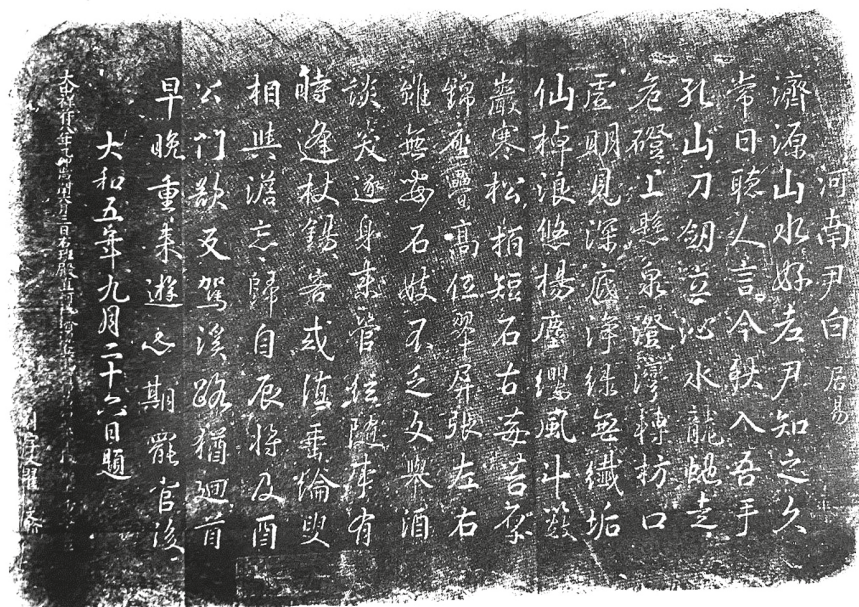 河南尹白居易
濟源山水好老尹知之久
常日聽人言今秋入吾手
孔山刀劒立沁水龍虵走
危磴上懸泉澄灣轉枋口
虛明見深底淨綠無纖垢
仙棹浪悠揚塵纓風斗藪
巖寒松柏短石古莓苔厚
錦座疊高低翠屏張左右
雖無安石妓不乏文舉酒
談笑逐身來管絃隨事有
時逢杖錫客或值垂綸叟
相與澹忘歸自辰將及酉
公門欲反駕溪路猶廻首
早晚重來遊心期罷官後
大和五年九月二十六日題